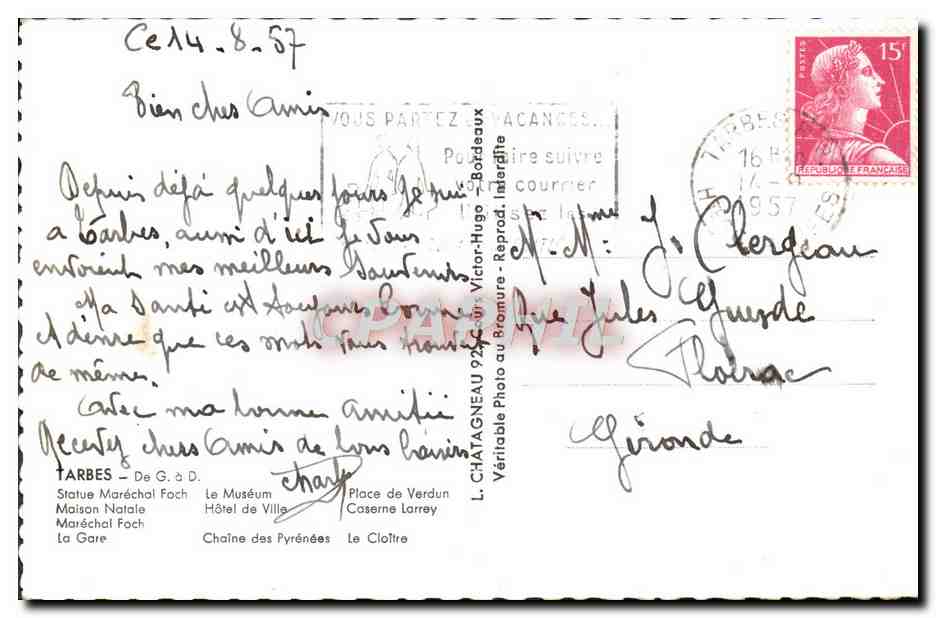 Ce 14-8-57
Bien chers Amis
Depuis déjà quelques jours Je suis
a Tarbes, aussi d'ici Je vous
envoient mes meilleurs souvenirs
Ma Santé est toujours bonne
et désire que ces mots vous trouvent
de même.
avec ma bonne amitié
Recevez chers Amis de bons baisers
Charly
TARBES - De G. à D.
Statue Maréchal Foch Le Muséum Place de Verdun
Maison Natale Hôtel de Ville Caserne Larrey
Maréchal Foch
La Gare Chaîne des Pyrénées Le Cloître
L. CHATAGNEAU 92, Cours Victor-Hugo - Bordeaux
Véritable Photo au Bromure - Reprod. Interdite
VOUS PARTEZ EN VACANCES...
Pour faire suivre
votre courrier
TARBES
16 H
14-8
1957
POSTES
15F
REPUBLIQUE FRANÇAISE
M. Mme J. Clergeau
Rue Jules Guesde
Floirac
Gironde
CPARAMIL